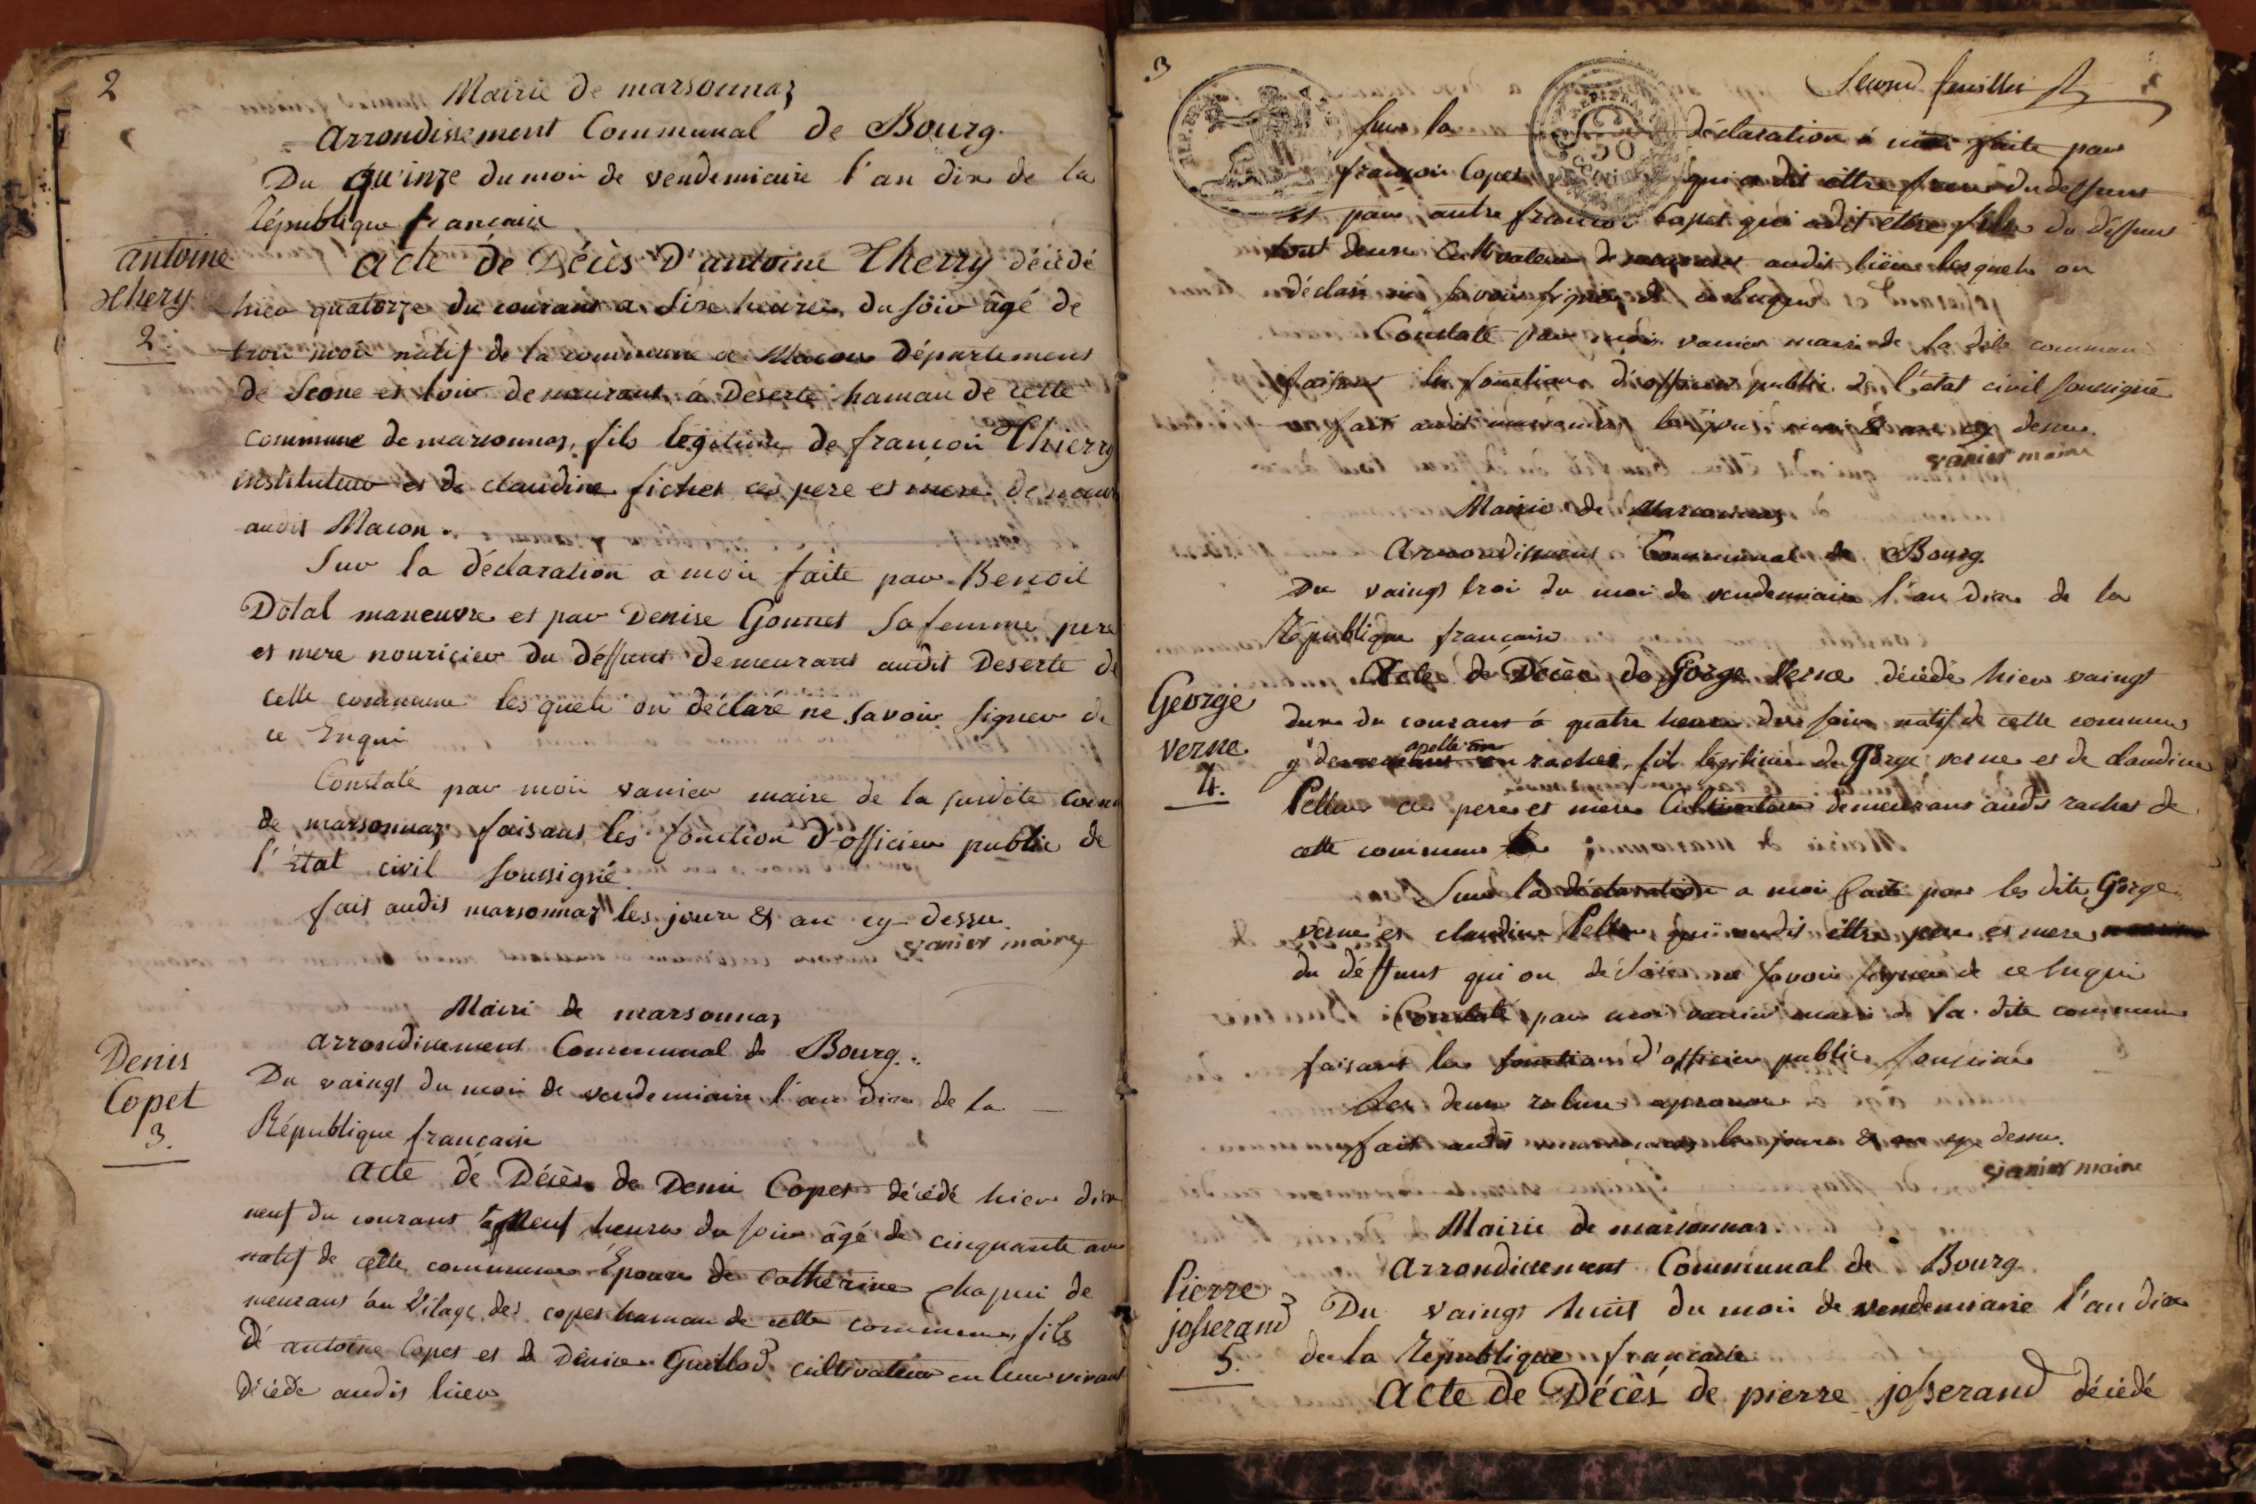 2
Mairie de marsonnaz
arrondissement Communal de Bourg
Du quinze du moii de vendemiaire l'an dix de la
République francaise
antoine
thery
2.
acte de Décès D'antoine Therry décédé
hier quatorze du courant a Sixe heures du soir âgé de
troii moii natif de la commune de Macon Département
de Seone et loir demeurant á Deserte hamau de cette
commune de marsonnaz, fils legitime de françoii Thierry
instituteur et de claudine fichet ces pere et mere demeur
audit Macon.
Sur la déclaration a moii faite par Benoit
Dotal maneuvre et par Denise Gonnet sa femme pere
et mere nouricier du déffunt demeurant audit Deserte de
cette commune les quels on déclaré ne savoir signer de
ce Enquii
Constaté par moii vanier maire de la susdite Comm
de marsonnaz faisant les fonction d'officier public de
l'état civil soussigné
fait audit marsonnaz les jour & an cy dessu.
vanier maire
Mairi de marsonnaz
arrondisement Communal de Bourg.
Denis
Copet
3.
Du vaingt du moii de vendemiaire l'an dix de la
République francaise
acte de Décès de Denii Copet décédé hier dix
neuf du courant á Neuf heures du soir âgé de cinquante ans
natif de cette commune Epoux de Catherine chapui de
meurant au Vilage des copet hamau de cette commune, fils
d'antoine Copet et de Denise Guillod cultivateur en leur vivant
décédé audit lieu
3
Second feuillet
Sur la déclaration á moii faite par
françoii Copet qui a dit ettre frere du deffunt
et par autre françoii Copet qui a dit être fils du déffunt
tout deux Cultivateur de marsonnaz audit lieu les quels on
déclaré ne savoir signer de ce Enquis
Constaté par moii vanier maire de la dite commun
faisant les fonctions d'officier public de l'état civil soussigné
fait audit marsonnaz les jour & an cy dessu.
vanier maire
Mairie de marsonnaz
arrondissement Communal de Bourg.
Du vaingt troi du moi de vendemiaire l'an dix de la
République francaise
George
verne
4.
Acte de Décès de Gorge Verne décédé hier vaingt
deux du courant á quatre heure du soir natif de cette commune
y demeurant en rachet, fils legitime de Gorge verne et de claudine
apellé au
Pellux ces pere et mere Cultivateur demeurant audit rachet de
cette commune
Sur la déclaration a moi faite par les dite Gorge
verne et claudine Pellux qui on dit ettre pere et mere
du déffunt qui on déclaré ne savoir signer de ce Enquii
Constaté par moi vanier maire de la dite commune
faisant les fonction d'officier public soussigné
Les deux rature aprouvé
fait audit marsonnaz les jours & an cy dessu.
vanier maire
Mairie de marsonnaz.
arrondissement Communal de Bourg
Pierre
josserand
5.
Du vaingt huit du moii de vendemiaire l'an dix
de la République francaise
acte de Décès de pierre josserand décédé